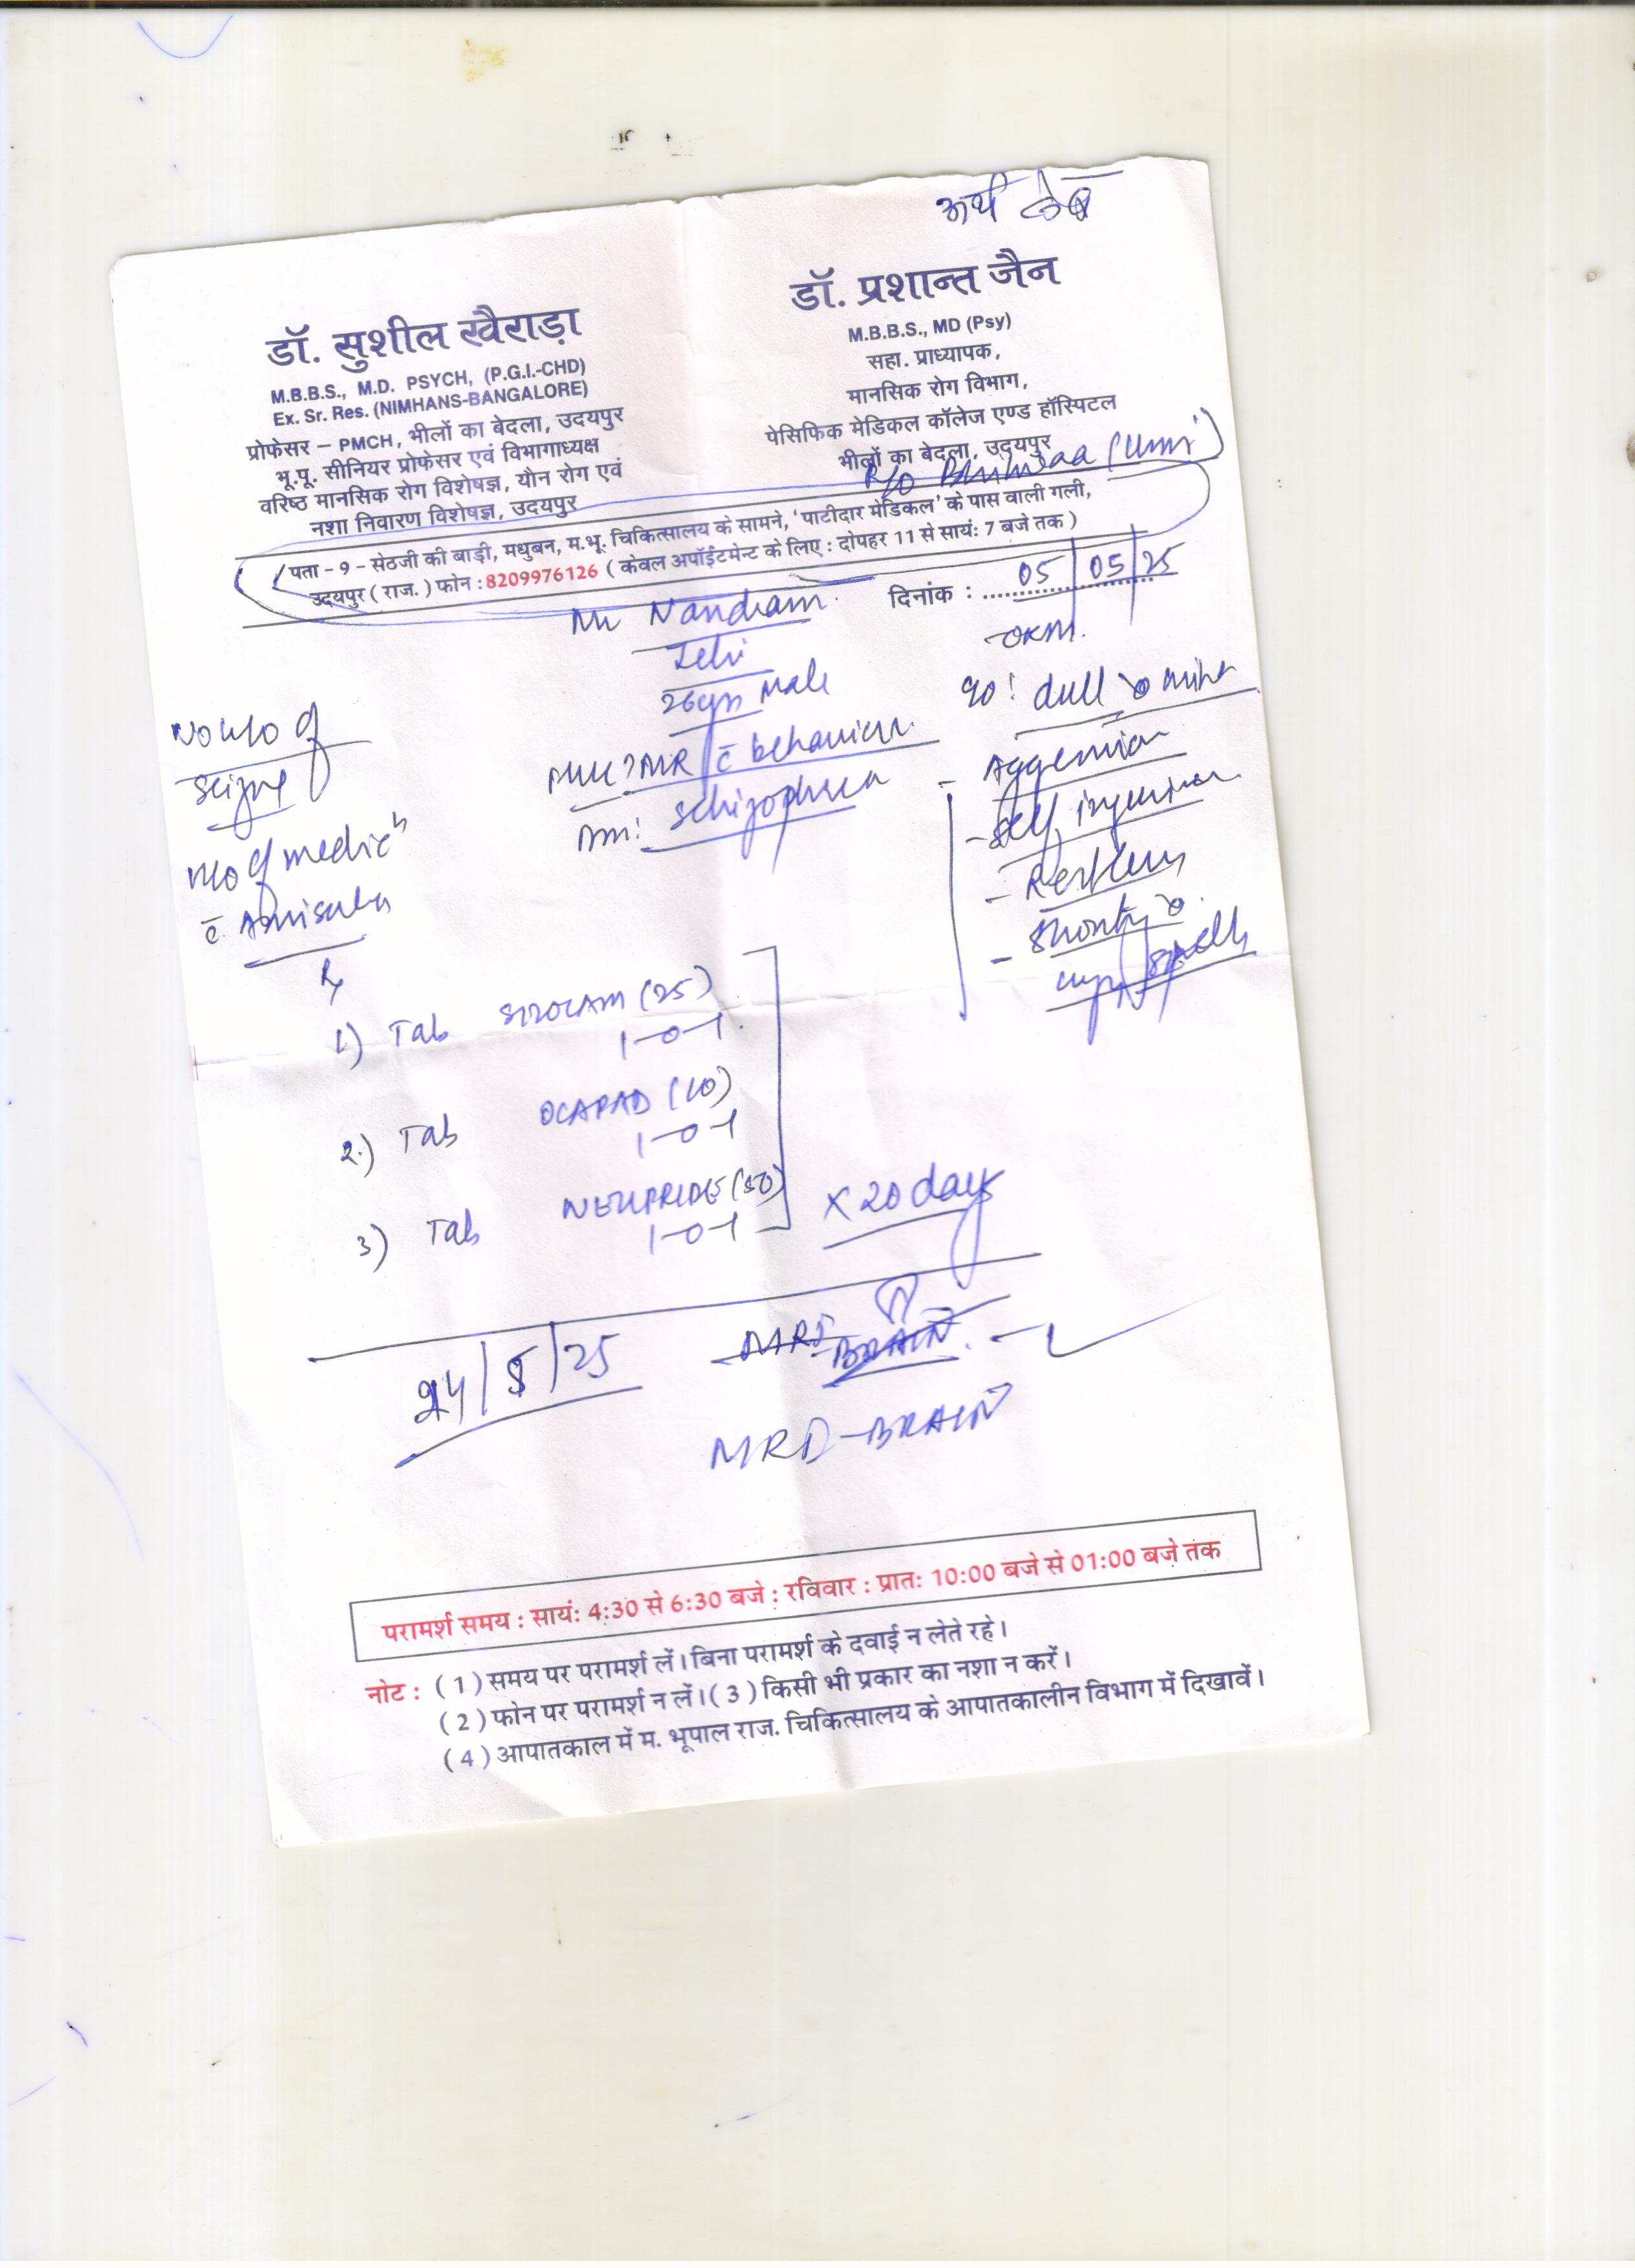 अर्थ
डॉ. सुशील खैराड़ा
M.B.B.S., M.D. PSYCH, (P.G.I.-CHD)
Ex. Sr. Res. (NIMHANS-BANGALORE)
प्रोफेसर – PMCH, भीलों का बेदला, उदयपुर
भू.पू. सीनियर प्रोफेसर एवं विभागाध्यक्ष
वरिष्ठ मानसिक रोग विशेषज्ञ, यौन रोग एवं
नशा निवारण विशेषज्ञ, उदयपुर
डॉ. प्रशान्त जैन
M.B.B.S., MD (Psy)
सहा. प्राध्यापक,
मानसिक रोग विभाग,
पेसिफिक मेडिकल कॉलेज एण्ड हॉस्पिटल
भीलों का बेदला, उदयपुर
R/o
पता – 9 – सेठजी की बाड़ी, मधुबन, म.भू. चिकित्सालय के सामने, 'पाटीदार मेडिकल' के पास वाली गली,
उदयपुर ( राज. ) फोन : 8209976126 ( केवल अपॉईंटमेन्ट के लिए : दोपहर 11 से सायं: 7 बजे तक )
दिनांक : 05/05/25
Mr Nandram
Male
c̄ behaviour
schizophrea
dull
- Aggression
- Self injurious
- Restless
No h/o of
h/o of
c̄
Rx
1) Tab SIZOCAM (25)
1-0-1
2) Tab OCAPAD (10)
1-0-1
3) Tab NEUPRIDE (50)
1-0-1
x 20 days
24/5/25
MRI BRAIN
-BRAIN
परामर्श समय : सायं: 4:30 से 6:30 बजे : रविवार : प्रात: 10:00 बजे से 01:00 बजे तक
नोट : ( 1 ) समय पर परामर्श लें। बिना परामर्श के दवाई न लेते रहे।
( 2 ) फोन पर परामर्श न लें। ( 3 ) किसी भी प्रकार का नशा न करें।
( 4 ) आपातकाल में म. भूपाल राज. चिकित्सालय के आपातकालीन विभाग में दिखावें।